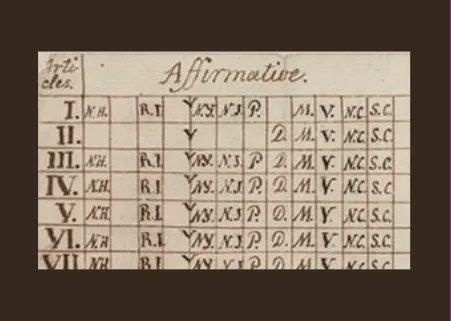 Arti
cles.
Affirmative.
I. N.H. R.I. Y N.Y. N.J. P. M. V. N.C. S.C.
II. Y D. M. V. N.C. S.C.
III. N.H. R.I. Y N.Y. N.J. P D. M. V. N.C. S.C.
IV. N.H. R.I Y N.Y. N.J. P. D. M. V. N.C. S.C.
V. N.H. R.I. Y N.Y. N.J. P. D M. V. N.C. S.C.
VI. N.H R.I. Y N.Y. N.J. P. D. M. V. N.C. S.C.
VII N.H R.I. Y N.Y. N.J P. D. M. V. N.C. S.C.